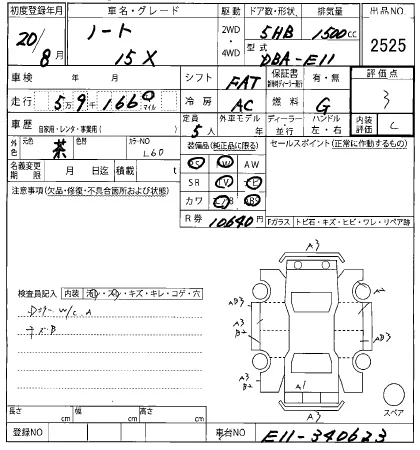 初度登録年月 車名・グレード 駆動 ドア数・形状 排気量 出品NO
20/8月 ノート 15X 2WD ・ 4WD 5HB 1500cc 2525
型式 DBA-E11
車検 年 月 シフト FAT 保証書 有・無 評価点 3
走行 5万9千166 0 マイル 冷房 AC 燃料 G
車歴 自家用・レンタ・事業用( ) 定員 5人 外車モデル 年 ディーラー ・ 並行 ハンドル 左・右 内装評価 C
外色 元色 茶 色替 カラーNO L60
装備品(純正品に限る) セールスポイント(正常に動作するもの)
名義変更期限 月 日迄 積載 t
PS PW AW
SR TV ナビ
カワ エアB ABS
注意事項(欠品・修復・不具合箇所および状態)
R券 10640円
Fガラス トビ石・キズ・ヒビ・ワレ・リペア跡
検査員記入 内装 汚レ・スレ・キズ・キレ・コゲ・穴
A3
A3
B2
A1
A3
スペア
長さ cm 幅 cm 高さ cm
登録NO 車台NO E11-340623